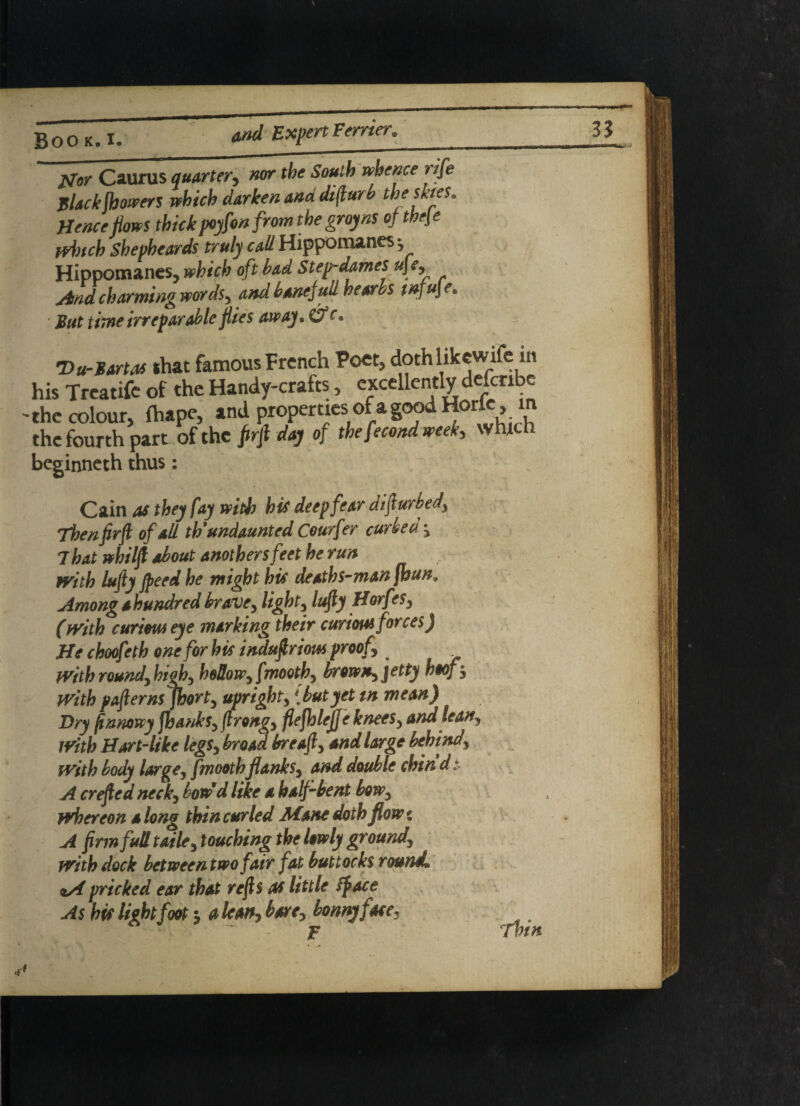 Book. I. and Expert Ferrier. 33
Nor Caurus quarter, nor the South whence rise
Black showers which darken and disturb the skies.
Hence flows thick poyson from the groyns of these
which Shepheards truly call Hippomanes;
Hippomanes, which oft bad Step-dames use,
And charming words, and banefull hearbs infuse.
But time irreparable flies away. &c.
Du-Bartas that famous French Poet, doth likewise in
his Treatise of the Handy-crafts, excellently describe
the colour, shape, and properties of a good Horse, in
the fourth part of the first day of the second week, which
beginneth thus:
Cain as they say with his deep fear disturbed,
Then first of all th'undaunted Courser curbed;
That whilst about anothers feet he run
with lusty speed he might his deaths-man shun.
Among a hundred brave, light, lusty Horses,
(with curious eye marking their curious forces)
He chooseth one for his industrious proof,
with round, high, hollow, smooth, brown, jetty hoof;
with pasterns short, upright, (but yet in mean)
Dry sinnowy shanks, strong, fleshlesse knees, and lean,
with Hart-like legs, broad breast, and large behind,
with body large, smooth flanks, and double chin'd:
A crested neck, bow'd like a half-bent bow,
whereon a long thin curled Mane doth flow:
A firm full taile, touching the lowly ground,
with dock between two fair fat buttocks round.
A pricked ear that rests as little space
As his light foot; a lean, bare, bonny face,
F Thin